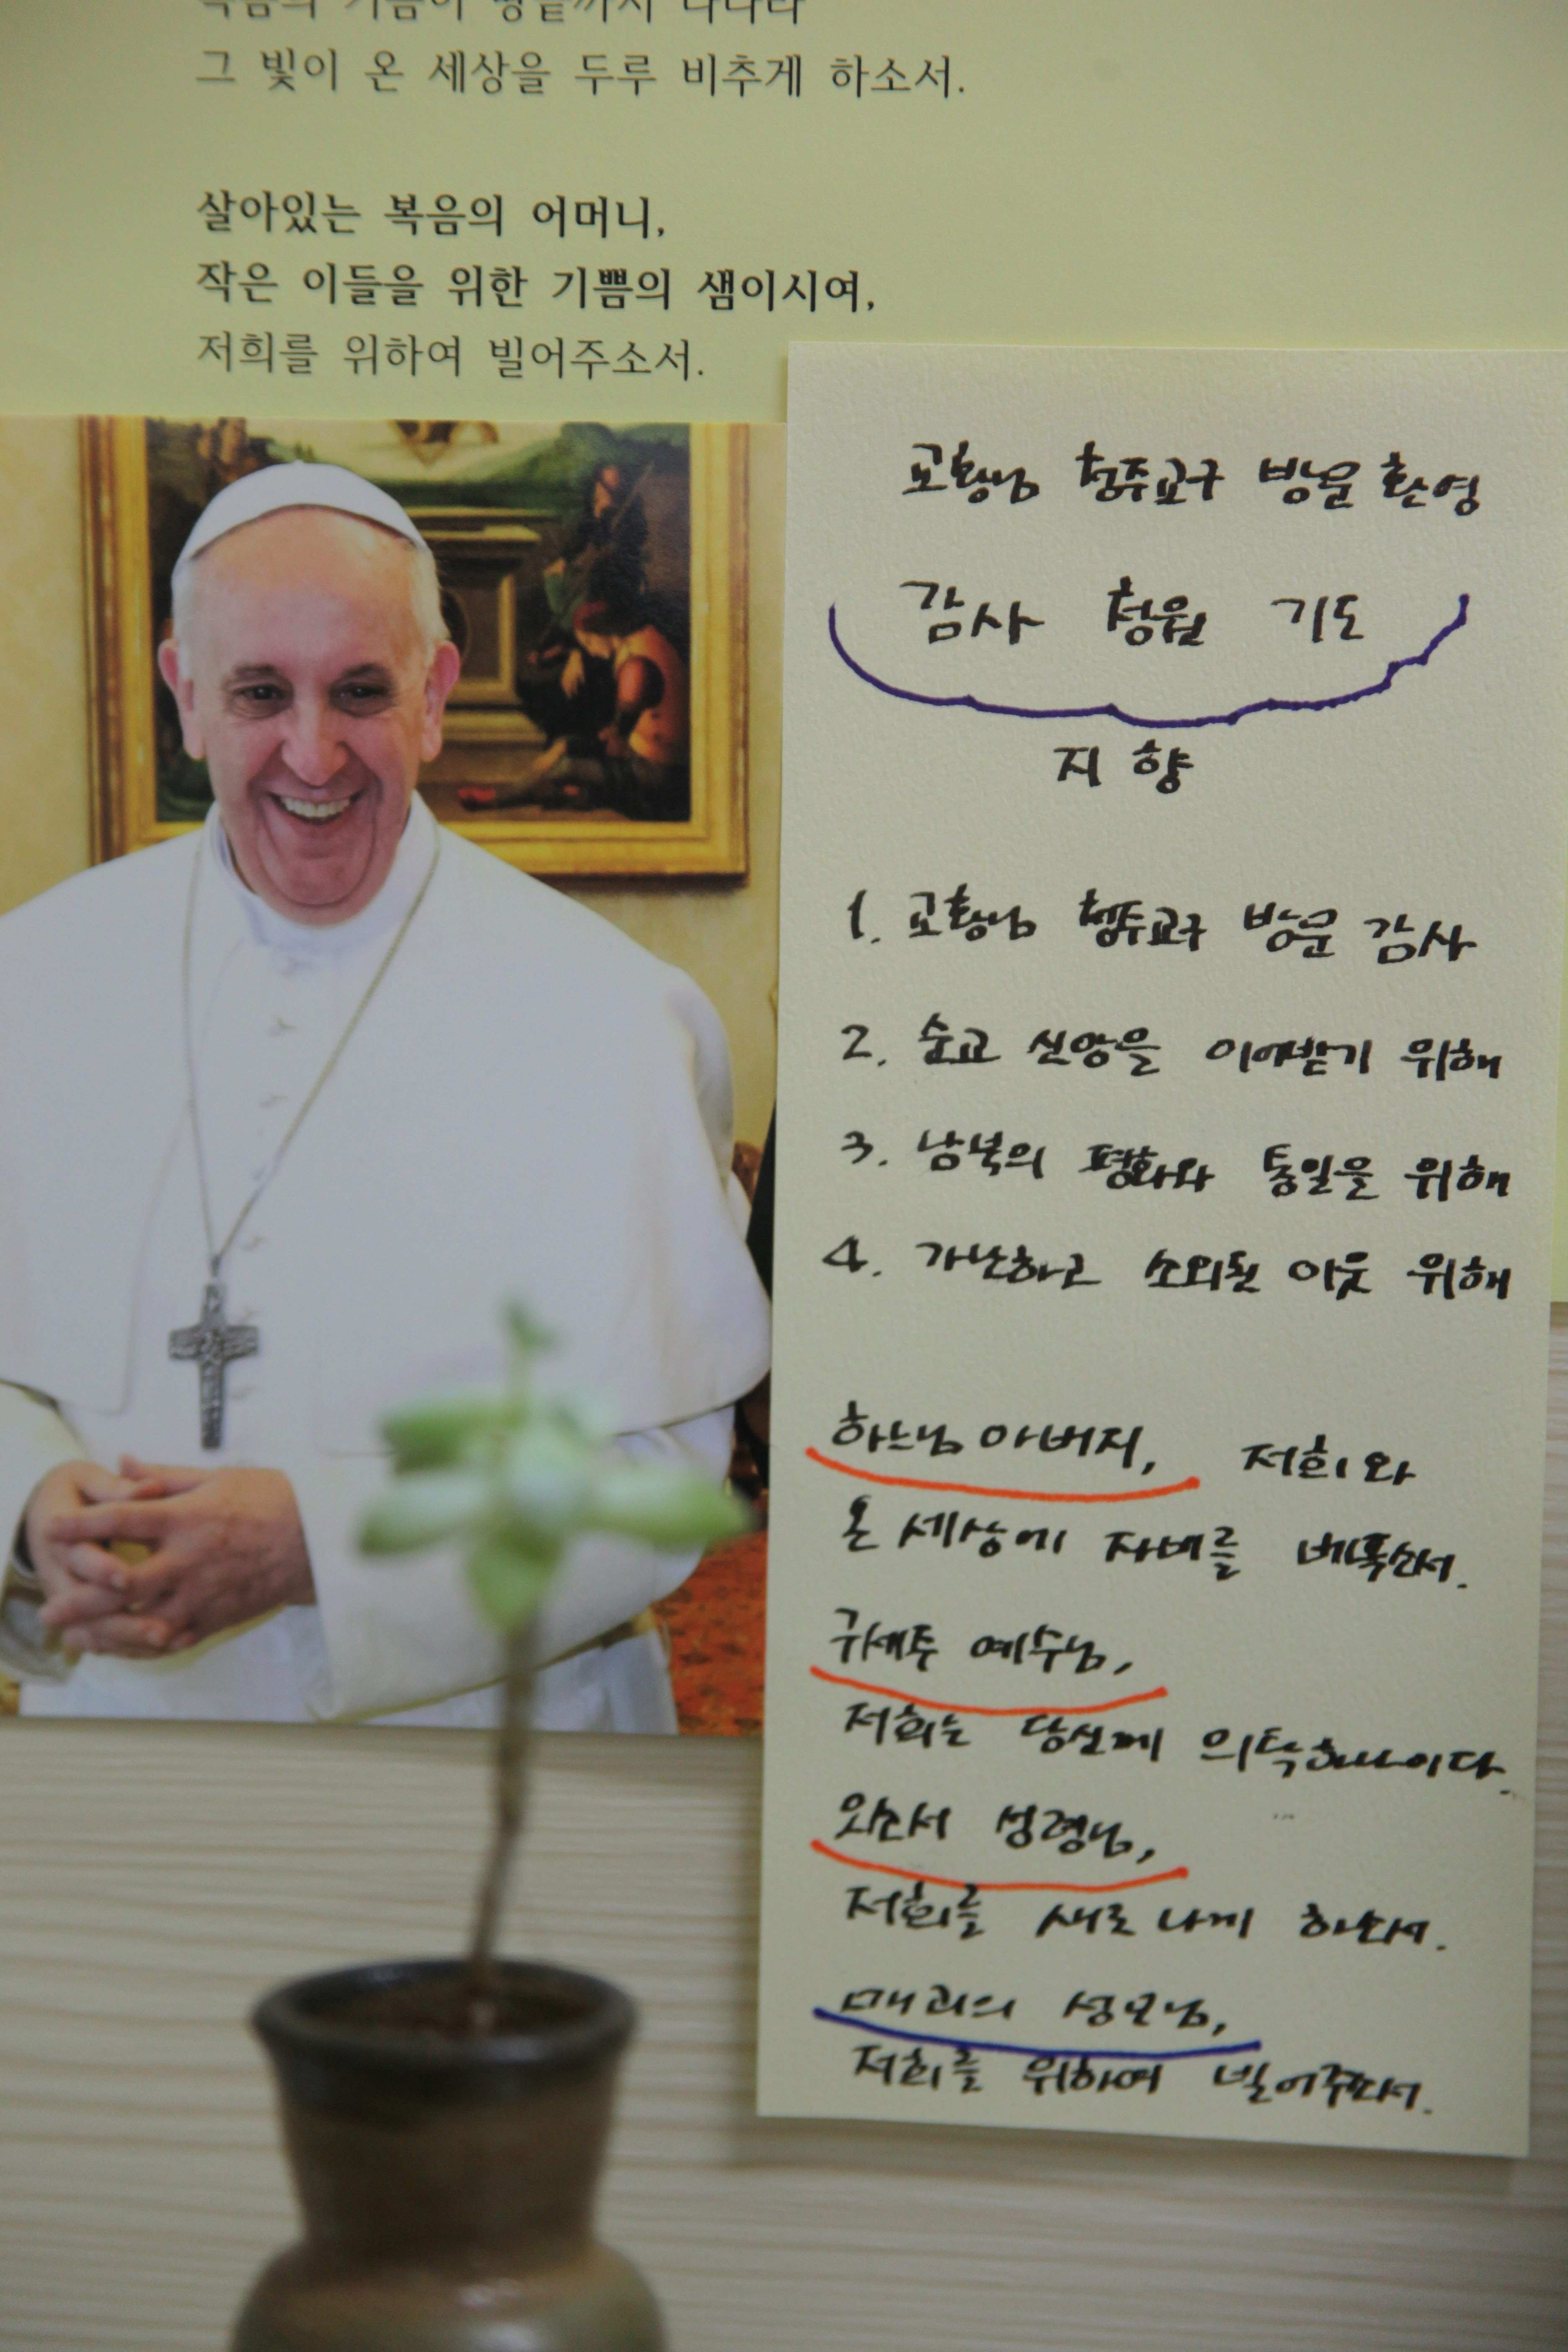 복음의 기쁨이 땅끝까지 다다라
그 빛이 온 세상을 두루 비추게 하소서.
살아있는 복음의 어머니,
작은 이들을 위한 기쁨의 샘이시여,
저희를 위하여 빌어주소서.
교황님 청주교구 방문 환영
감사 청원 기도
지향
1. 교황님 청주교구 방문 감사
2. 순교 신앙을 이어받기 위해
3. 남북의 평화와 통일을 위해
4. 가난하고 소외된 이웃 위해
하느님 아버지, 저희와
온 세상에 자비를 베푸소서.
구세주 예수님,
저희는 당신께 의탁하나이다.
오소서 성령님,
저희를 새로 나게 하소서.
매괴의 성모님,
저희를 위하여 빌어주소서.